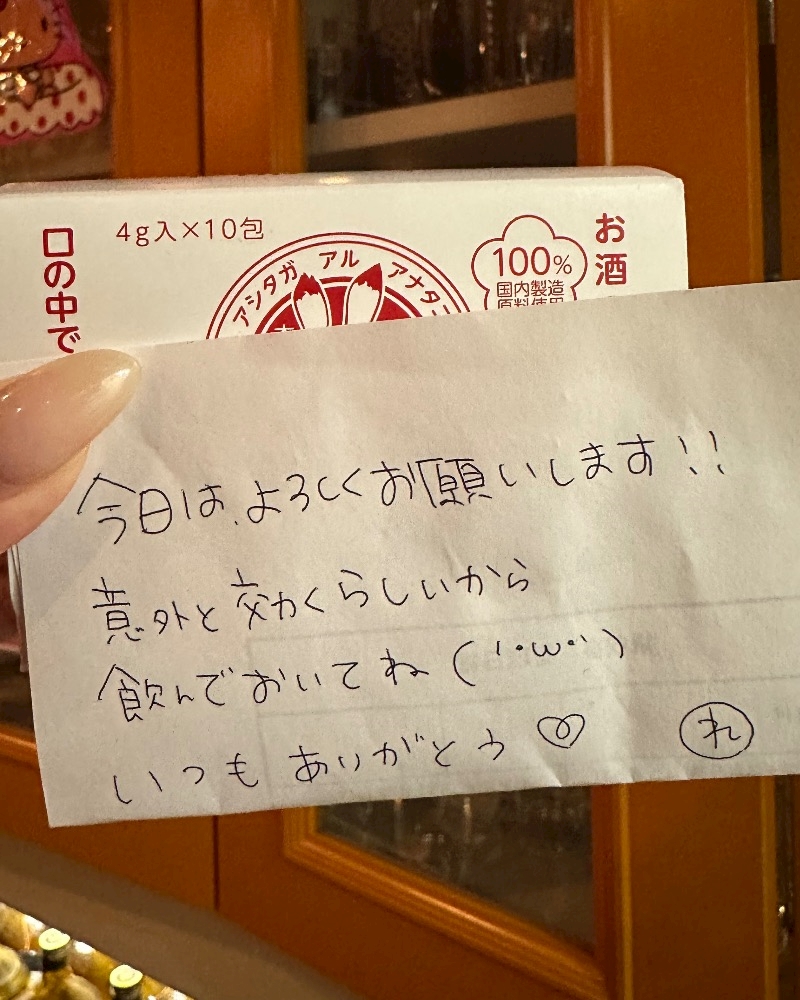 4g入×10包
口の中で
アシタガ アル アナタニ
100%
国内製造
原料使用
お酒
今日は、よろしくお願いします!!
意外と効くらしいから
飲んでおいてね(´･ω･`)
いつもありがとう♡
れ